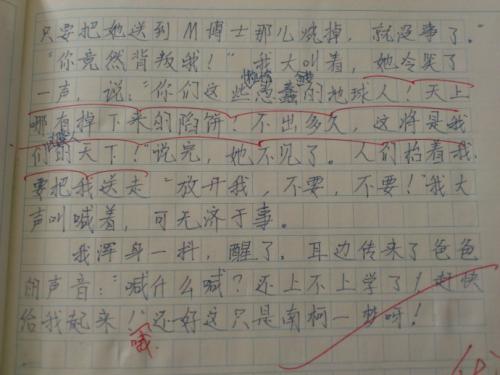 只要把她送到M博士那儿烧掉，就没事了。”
“你竟然背叛我！”我大叫着，她冷哭了
一声，说：“你们这些愚蠢的地球人！天上
哪有掉下来的陷饼！不出多久，这将是我
们的天下！”说完，她不见了。人们抬着我
要把我送走“放开我，不要，不要！”我大
声叫喊着，可无济于事。
我浑身一抖，醒了。耳边传来了爸爸
的声音：“喊什么喊？还上不上学了！赶快
给我起来！”还好这只是南柯一梦呀！
哦